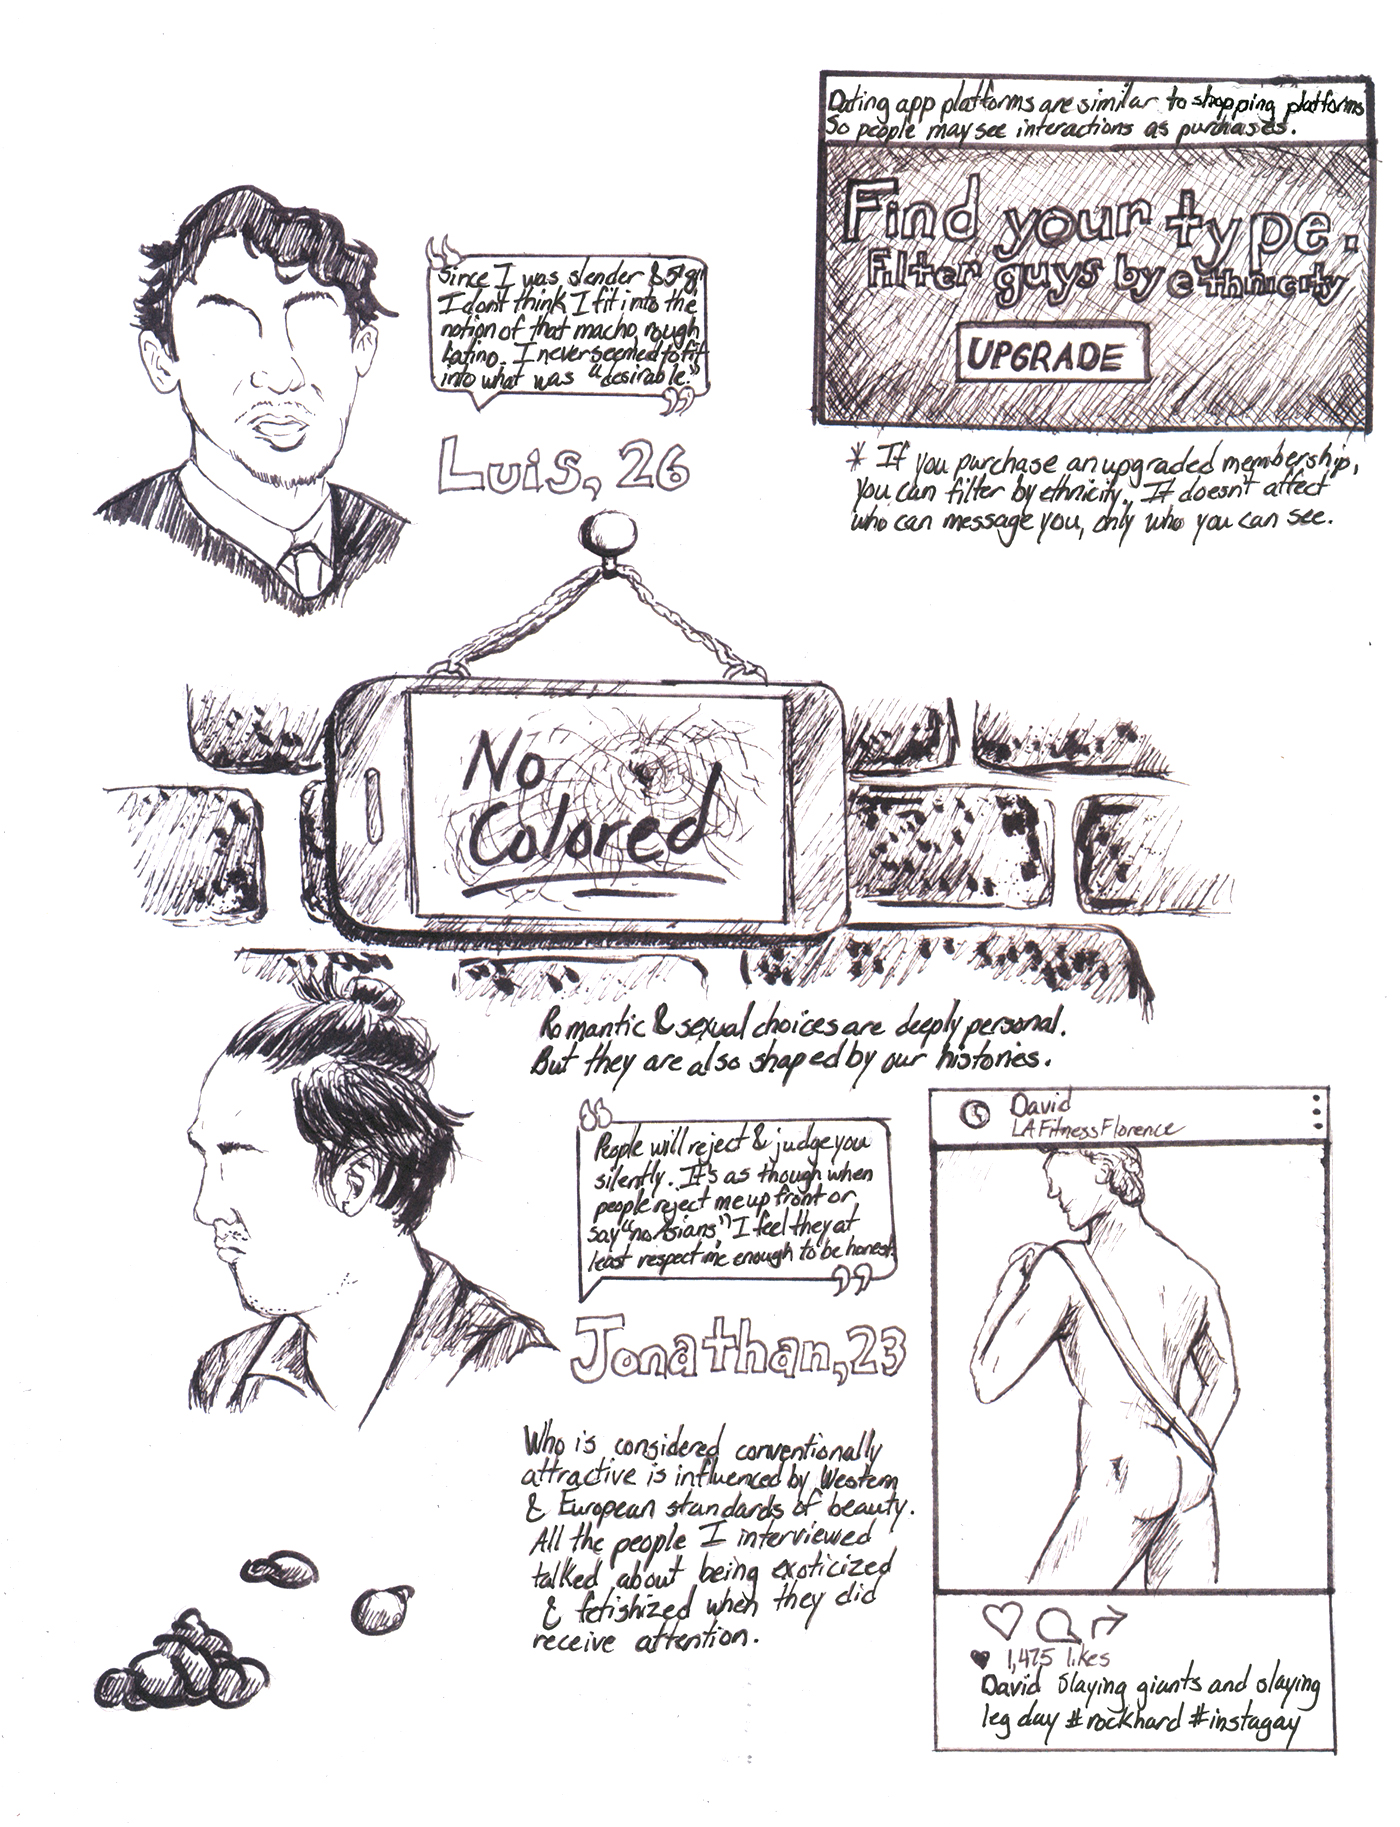 Dating app platforms are similar to shopping platforms
So people may see interactions as purchases.
Find your type.
Filter guys by ethnicity
UPGRADE
* If you purchase an upgraded membership,
you can filter by ethnicity. It doesn't affect
who can message you, only who you can see.
Since I was slender & 5'9"
I don't think I fit into the
notion of that macho, rough
Latino. I never seemed to fit
into what was "desirable."
Luis, 26
No
Colored
Romantic & sexual choices are deeply personal.
But they are also shaped by our histories.
People will reject & judge you
silently. It's as though when
people reject me up front or
say "no Asians" I feel they at
least respect me enough to be honest.
Jonathan, 23
Who is considered conventionally
attractive is influenced by Western
& European standards of beauty.
All the people I interviewed
talked about being exoticized
& fetishized when they did
receive attention.
David
LA Fitness Florence
1,475 likes
David Slaying giants and slaying
leg day #rockhard #instagay